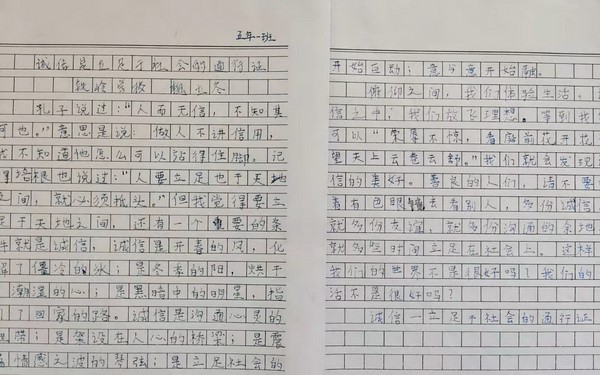 五年一班
诚信是立足于社会的通行证
孔子说过:“人而无信,不知其
可也。”意思是说:做人不讲信用,
我不知道他怎么可以站得住脚。记
里培根也说过:“人要立足也于天地
之间,就必须抬头。”但我觉得要立
足于天地之间,还有一个重要的条
件就是诚信,诚信是开春的风,化
解了僵冷的冰;是冬季的阳,烘干
潮湿的心;是黑暗中的明星,指
了回家的路。诚信是沟通心灵的
纽带;是架设在人心的桥梁;是震
情感之波的琴弦;是立足社会的
开始互助;意与意开始融。
俯仰之间,我们体验生活。
信之中,我们放飞理想。拿到我
可以“荣辱不惊,看庭前花开花
望天上云卷云舒。”我们就会发现
信的美好。善良的人们,请不要
着有色眼去看别人,多份诚信
就多份友谊,就多份沟通的余地
就多些时间立足在社会上。这样
我们的世界不是很好吗!我们的
活不是很好吗?
诚信一立足于社会的通行证